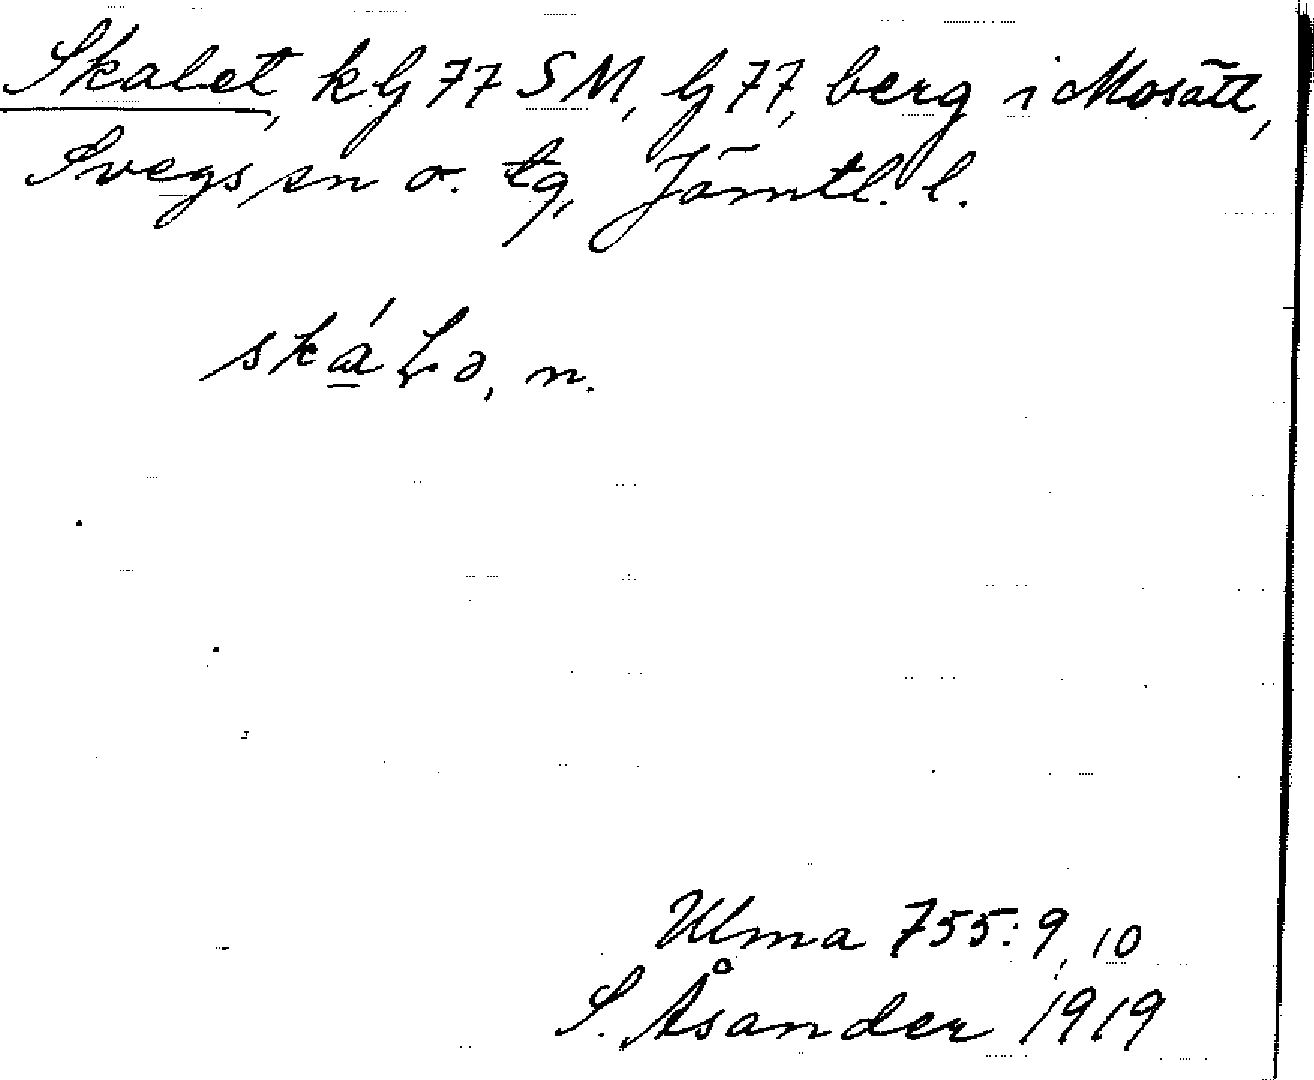 Skalet, k lj 77 SM, lj 77, berg i Mosätt,
Svegs sn o. tg, Jämtl. l.
ská̱Lə, n.
Ulma 755: 9, 10
S. Åsander 1919